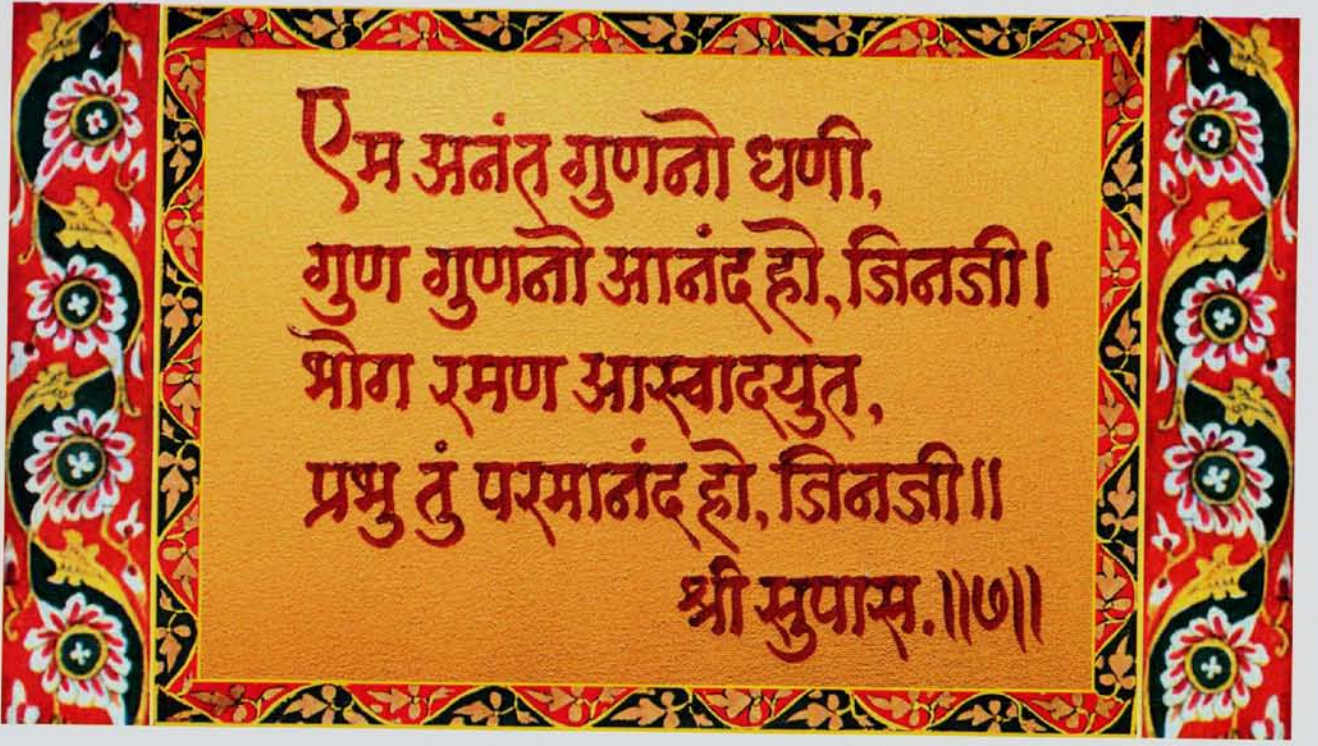 एम अनंत गुणनो धणी,
गुण गुणनो आनंद हो, जिनजी।
भोग रमण आस्वादयुत,
प्रभु तुं परमानंद हो, जिनजी॥
श्री सुपास.॥७॥